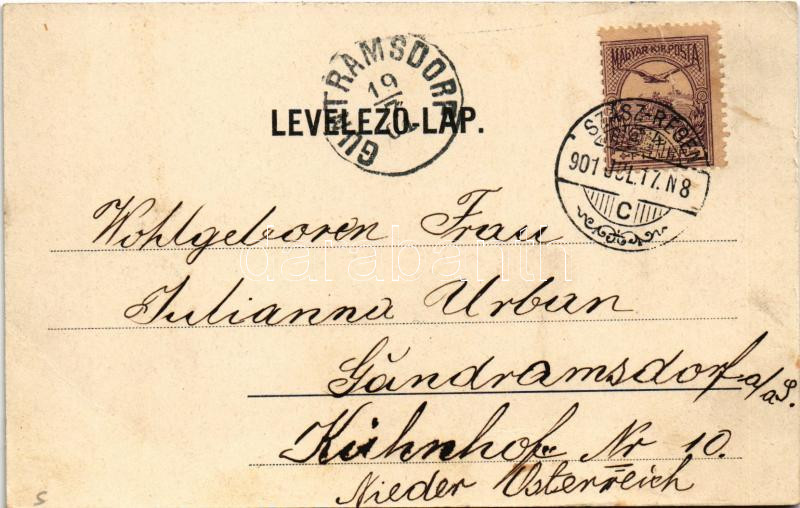 MAGYAR KIR. POSTA
GUNTRAMSDORF
19
LEVELEZŐ-LAP.
SZÁSZ-RÉGEN
901 JUL.17.N8
C
Wohlgeboren Frau
darabanth
Julianna Urban
Gúndramsdorf a/aS.
Kühnhof Nr 10.
Nieder Österreich
S